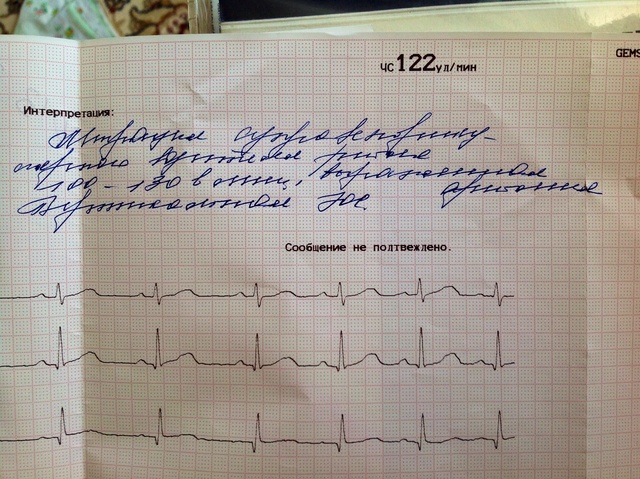 ЧС 122 ул/мин
GEMS
Интерпретация:
Миграция суправентрикулярного водителя ритма
100 - 130 в мин, выраженная аритмия
Вертикальная ЭОС.
Сообщение не полтвежлено.